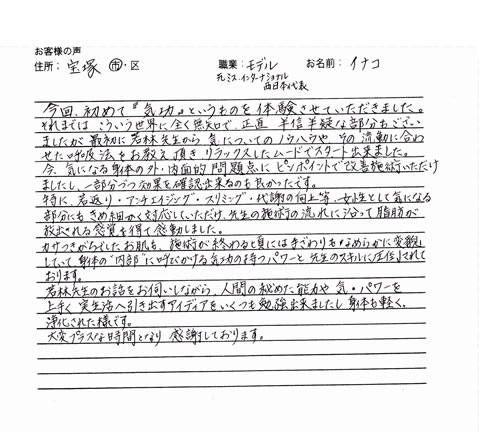 お客様の声
住所： 宝塚 市・区 職業：モデル お名前：イナコ
元ミス.インターナショナル
西日本代表
今回、初めて『気功』というものを体験させていただきました。
それまでは こういう世界に全く無知で、正直 半信半疑な部分もござい
ましたが最初に若林先生から 気についてのノウハウや その流動に合わ
せた呼吸法をお教え頂き リラックスしたムードでスタート出来ました。
今、気になる身体の外・内面的問題点に ピンポイントで改善施術いただけ
ましたし、一部分づつ効果を確認出来るのも良かったです。
特に、若返り・アンチエイジング・スリミング・代謝の向上等、女性として気になる
部分にも きめ細かく対応していただけ、先生の施術の流れに沿って脂肪が
放出される感覚を得て感動しました。
カサつきがちでしたお肌も、施術が終わると頃には手ざわりもなめらかに変貌
していて、身体の"内部"に呼びかける気功の持つパワーと先生のスキルに圧倒されて
おります。
若林先生のお話をお伺いしながら、人間の秘めた能力や 気・パワーを
上手く 実生活へ引き出すアイディアをいくつも勉強出来ましたし 身体も軽く、
浄化された様です。
大変プラスな時間となり 感謝しております。